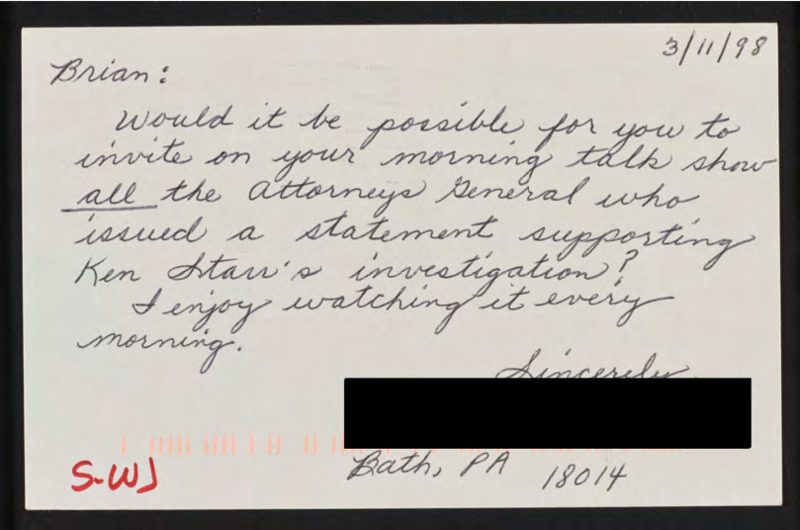 3/11/98
Brian:
Would it be possible for you to
invite on your morning talk show
all the Attorneys General who
issued a statement supporting
Ken Starr's investigation?
I enjoy watching it every
morning.
Sincerely
Bath, PA 18014
S-WJ